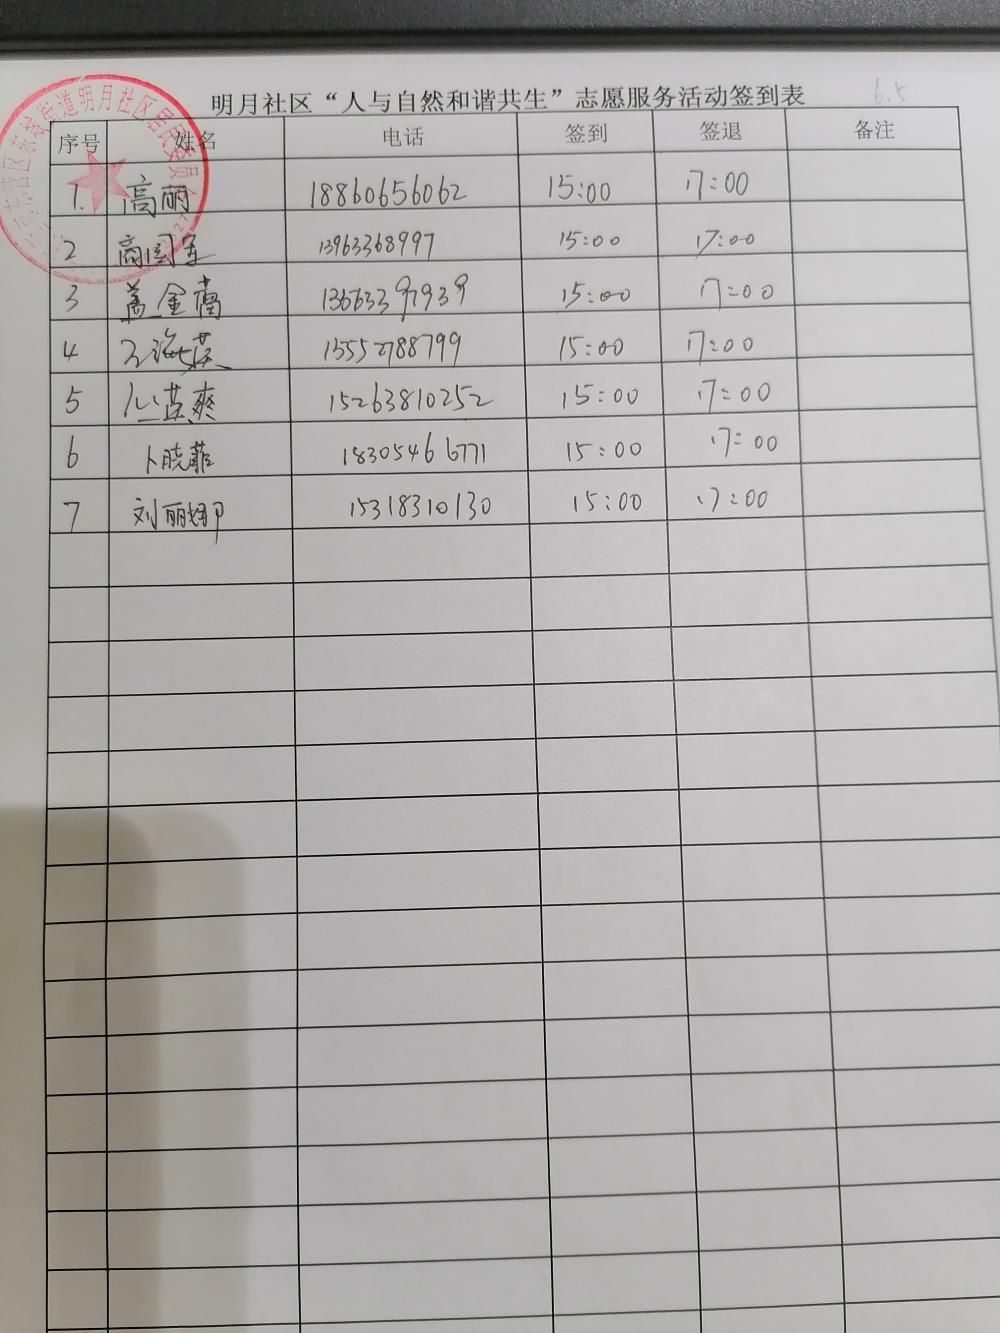 明月社区“人与自然和谐共生”志愿服务活动签到表 6.5
序号 姓名 电话 签到 签退 备注
1. 高丽 18860656062 15:00 17:00
2 商国军 13963368997 15:00 17:00
3 盖金 13663397939 15:00 17:00
4 王海英 13552788799 15:00 17:00
5 爽 15263810252 15:00 17:00
6 卜晓菲 18305466771 15:00 17:00
7 刘丽娜 15318310130 15:00 17:00
东营区东城街道明月社区居民委员会